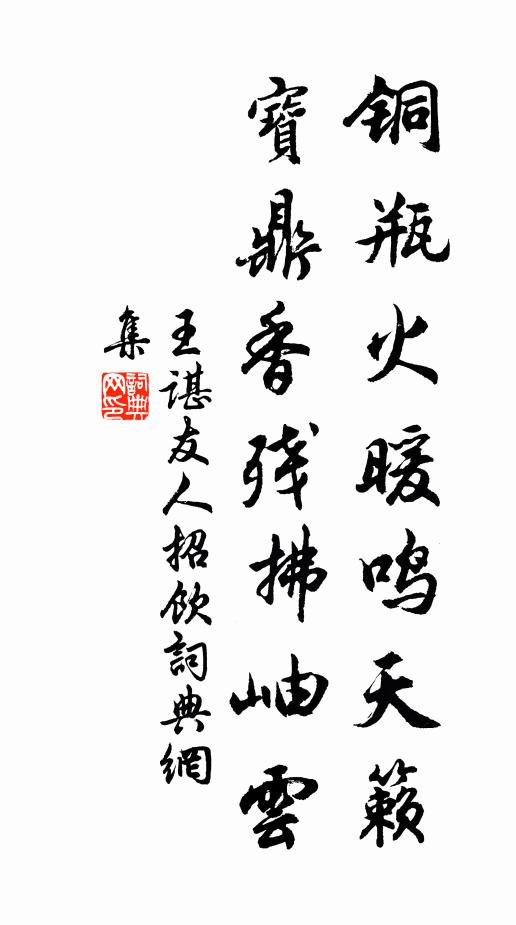 铜瓶火暖鸣天籁
寶鼎香残拂岫雲
王谌友人招飲詞典網
集
詞典网印